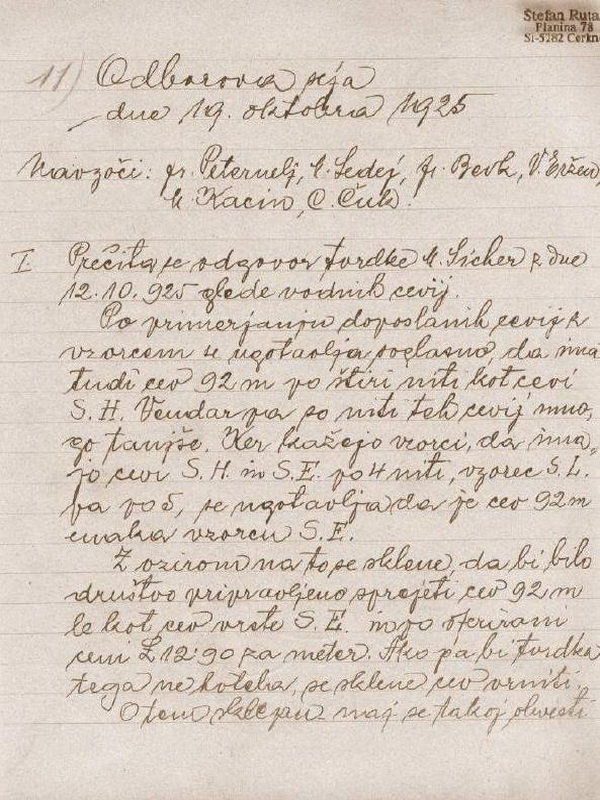 Štefan Ruta
Planina 78
SI-5282 Cerkn
11) Odborova seja
dne 19. oktobra 1925
Navzoči: fr. Peternelj, Sedej, fr. Bevk, V. Eržen,
Kacin, C. Čuk.
I Prečita se odgovor tvrdke Sicher z dne
12.10.925 glede vodnih cevij.
Po primerjanju doposlanih cevij z
vzorcem se ugotavlja soglasno, da ima
tudi cev 92 m po štiri niti kot cevi
S. H. Vendar pa so niti teh cevij mno,
go tanjše. Ker kažejo vzorci, da ima,,
jo cevi S. H. in S. E. po 4 niti, vzorec S. L.
pa po 5, se ugotavlja da je cev 92 m
enaka vzorcu S. E.
Z ozirom na to se sklene, da bi bilo
društvo pripravljeno sprejeti cev 92 m
le kot cev vrste S. E. in po oferirani
ceni £ 12·90 za meter. Ako pa bi tvrdka
tega ne hotela, se sklene cev vrniti.
O tem sklepu naj se takoj obvesti